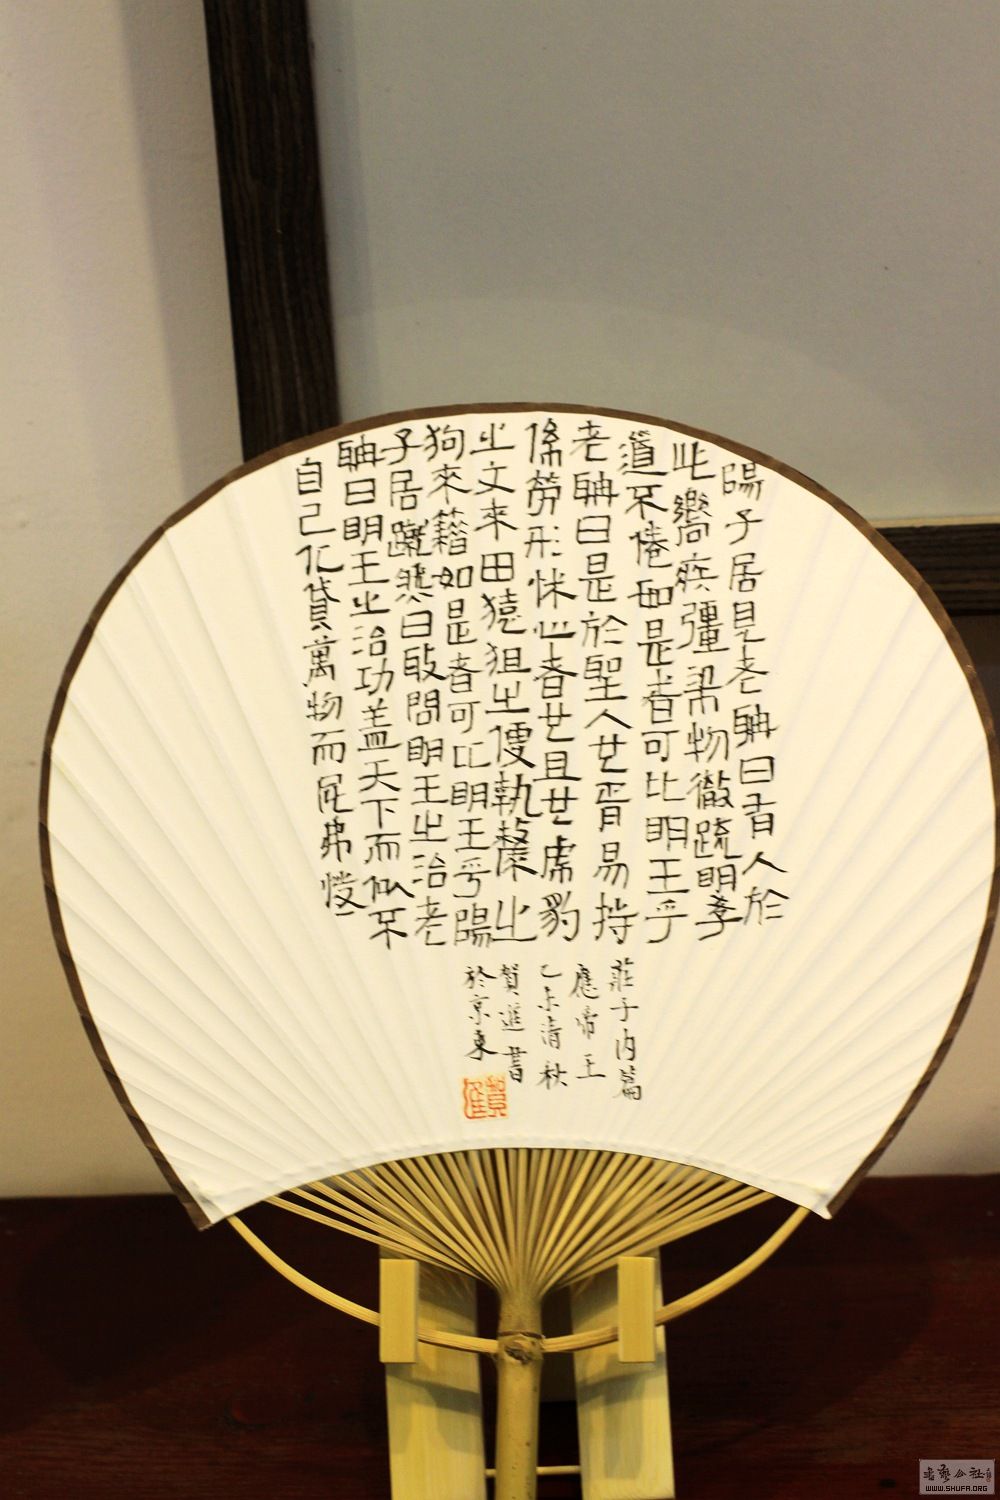 陽子居見老聃曰有人於
此嚮疾彊梁物徹疏明學
道不倦如是者可比明王乎
老聃曰是於聖人也胥易技
係勞形怵心者也且也虎豹
之文來田猨狙之便執斄之
狗來籍如是者可比明王乎陽
子居蹵然曰敢問明王之治老
聃曰明王之治功蓋天下而似不
自己化貸萬物而民弗恃
莊子內篇
應帝王
乙未清秋
賀進書
於京東
賀進
書藝公社
WWW.SHUFA.ORG